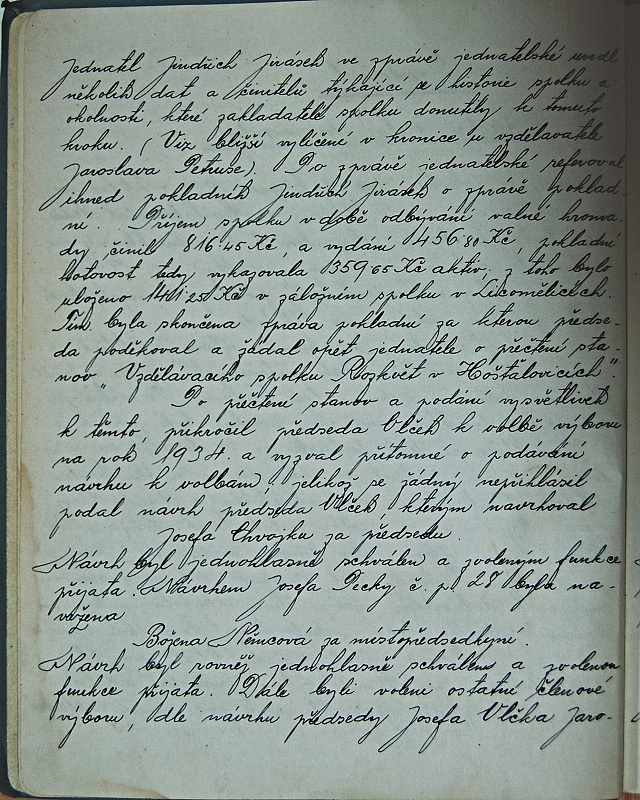 Jednatel Jindřich Jirásek ve zprávě jednatelské uvedl
několik dat a činitelů týkající se historie spolku a
okolnosti, které zakladatele spolku donutily k tomuto
kroku. (Viz bližší vylíčené v kronice u vzdělavatele
Jaroslava Petruse). Po zprávě jednatelské referoval
ihned pokladník Jindřich Jirásek o zprávě poklad-
ní. Příjem spolku v době odbývání valné hroma-
dy činil 816.45 Kč, a vydání 456.80 Kč, pokladní
hotovost tedy vykazovala 359 65 Kč aktiv, z toho bylo
uloženo 141.25 Kč v záložním spolku v Licoměřicích.
Tím byla skončena zpráva pokladní za kterou předse-
da poděkoval a žádal opět jednatele o přečtení sta-
nov „Vzdělávacího spolku Rozkvět v Hošťalovicích".
Po přečtení stanov a podání vysvětlivek
k těmto, přikročil předseda Vlček k volbě výboru
na rok 1934. a vyzval přítomné o podávání
návrhu k volbám, jelikož se žádný nepřihlásil
podal návrh předseda Vlček kterým navrhoval
Josefa Chvojku za předsedu.
Návrh byl jednohlasně schválen a zvoleným funkce
přijata. Návrhem Josefa Pecky č. p. 27 byla na-
vržena
Božena Němcová za místopředsedkyni.
Návrh byl rovněž jednohlasně schválen a zvolenou
funkce přijata. Dále byli voleni ostatní členové
výboru, dle návrhu předsedy Josefa Vlčka Jaro-